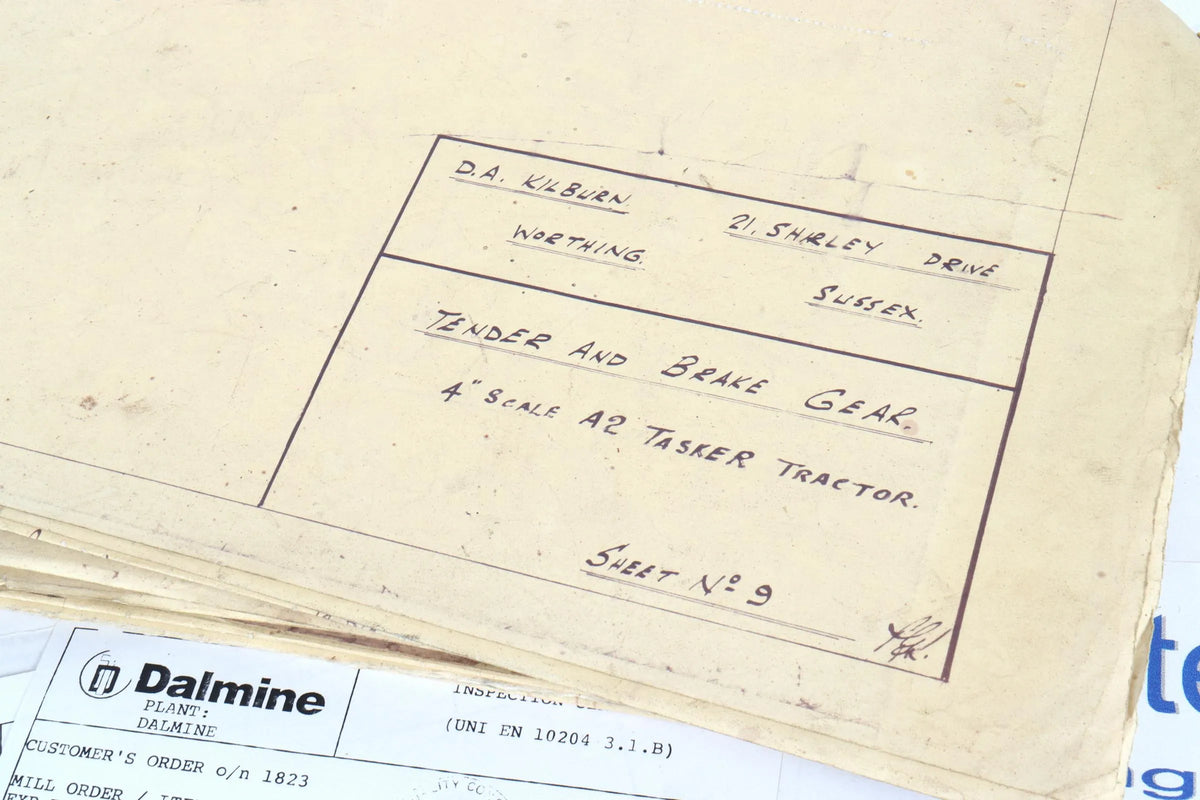 D.A. KILBURN. 21. SHIRLEY DRIVE
WORTHING. SUSSEX.
TENDER AND BRAKE GEAR.
4" SCALE A2 TASKER TRACTOR.
SHEET Nº 9
Dalmine
PLANT:
DALMINE
INSPECTION
(UNI EN 10204 3.1.B)
CUSTOMER'S ORDER o/n 1823
MILL ORDER /